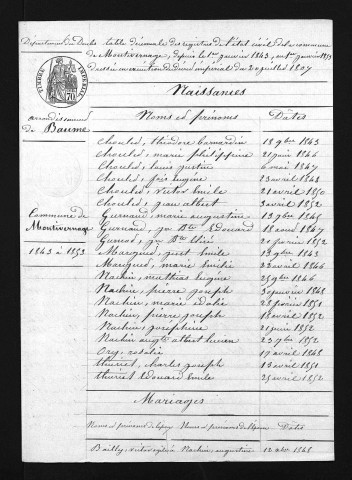 Département du Doubs table décennale des registres de l'état civil de la commune
de Montivernage, depuis le 1er janvier 1843, au 1er janvier 1853
dressée en exécution du décret impérial du 20 juillet 1807
TIMBRE IMPERIAL
70
Naissances
arrondissement
de Baume
Noms et prénoms Dates
Choulet, théodore bernardin 18 9bre 1843
Choulet, marie philippine 21 juin 1846
Choulet, louis justin 6 mai 1847
Choulet, frs eugène 3 avril 1848
Choulet, victor émile 21 avril 1850
Choulet, jean albert 3 avril 1852
Commune de
Montivernage
marie augustine 13 9bre 1845
édouard 18 août 1847
21 février 1852
1843 à 1853
just émile 13 9bre 1843
marie émilie 22 avril 1846
Nachin, mathieu eugène 25 9bre 1846
Nachin, pierre joseph 30 janvier 1848
Nachin, marie idalie 28 février 1851
Nachin, pierre joseph 18 avril 1852
Nachin, joséphine 21 juin 1852
Nachin augte albert lucien 23 9bre 1852
Ory, rosalie 17 avril 1848
thuriet, charles joseph 13 avril 1851
thuriet édouard émile 25 avril 1852
Mariages
Noms et prénoms de l'époux Noms et prénoms de l'épouse Dates
Bailly, Nachin, augustine 12 1848